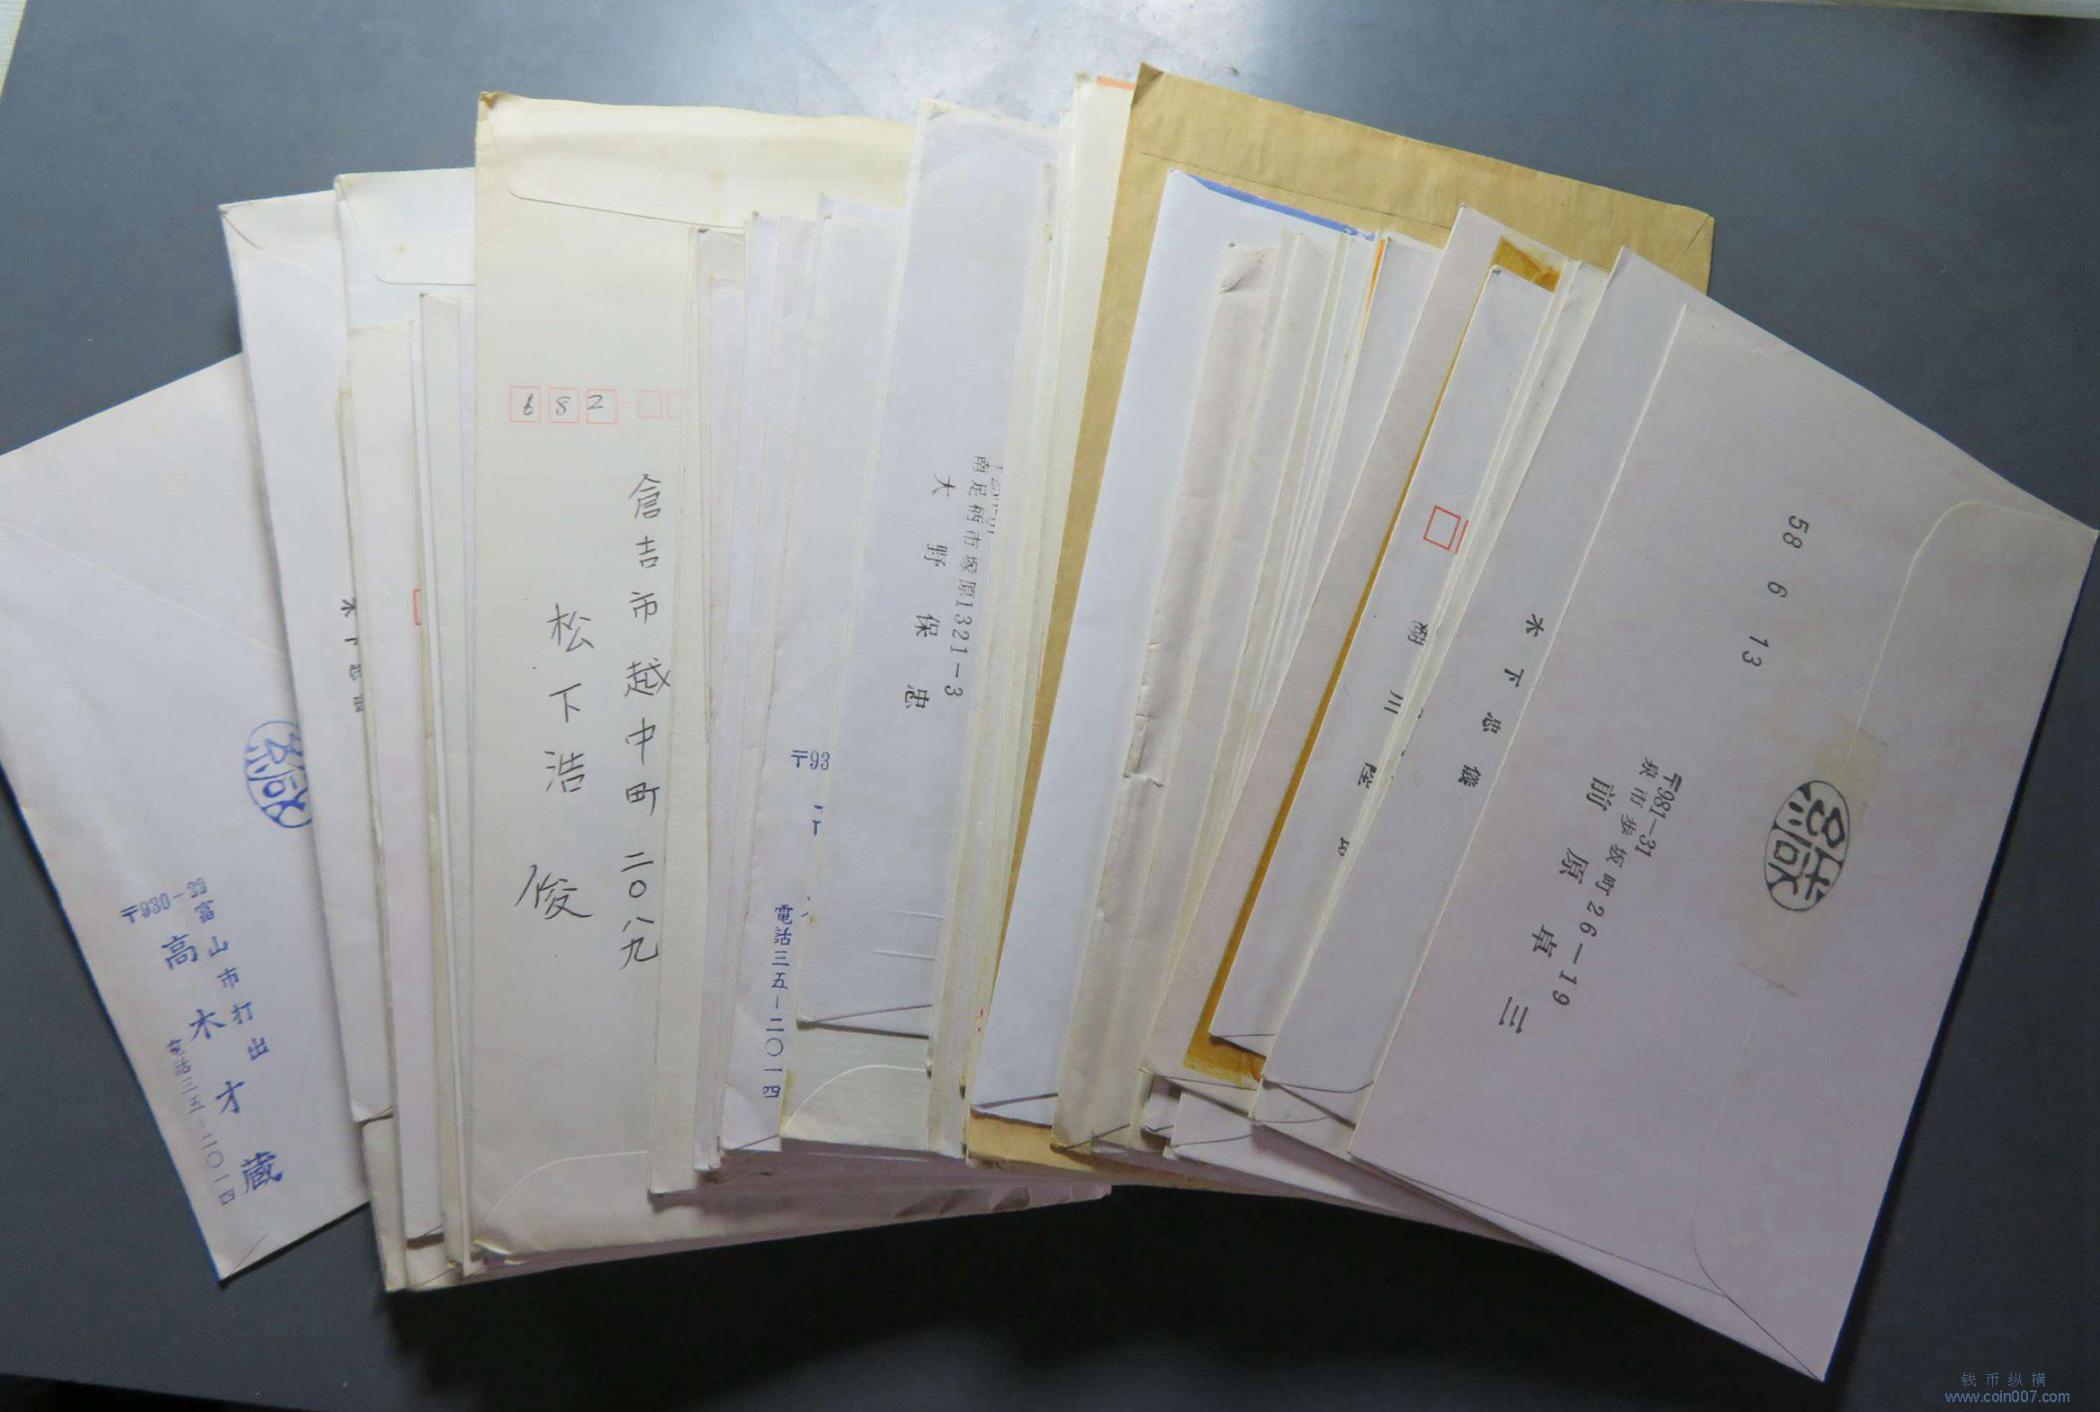 〒930-
富山市打出
高木才蔵
電話三五-二〇一四
木下忠
682
倉吉市越中町二〇八九
松下浩俊
〒93
電話三五-二〇一四
南足柄市塚原1321-3
大野保忠
川
木下忠儀
58 6 13
〒981-31
泉市歩坂町26-19
前原卓三
钱币纵横
www.coin007.com